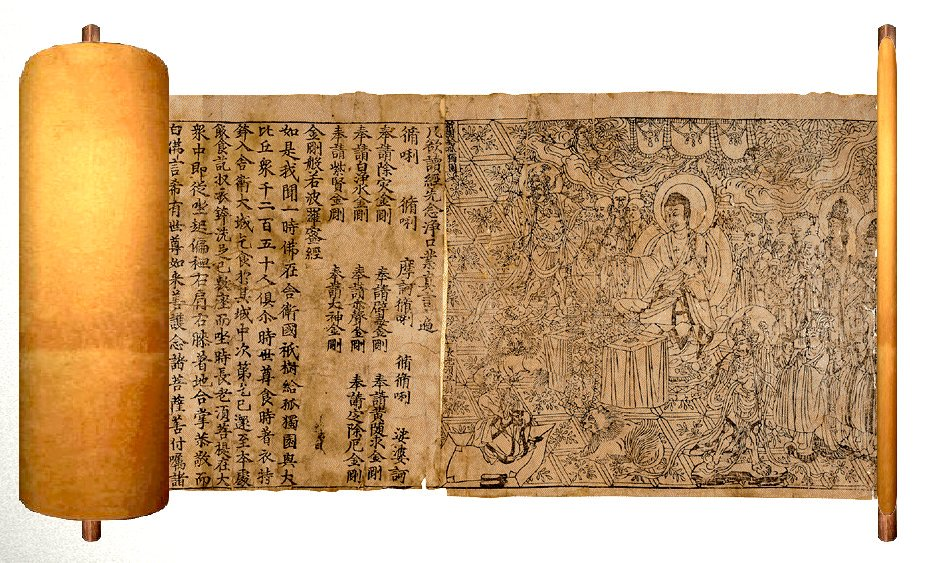 凡欲讀經先念淨口業真言一遍
脩唎 脩唎 摩訶脩唎 脩脩唎 娑婆訶
奉請除灾金剛 奉請辟毒金剛 奉請黄随求金剛
奉請白淨水金剛 奉請赤聲金剛 奉請定除厄金剛
奉請紫賢金剛 奉請大神金剛
金剛般若波羅蜜經
如是我聞一時佛在舍衛國祇樹給孤獨園與大
比丘衆千二百五十人俱尒時世尊食時著衣持
鉢入舍衛大城乞食於其城中次第乞已還至本處
飯食訖収衣鉢洗足已敷座而坐時長老須菩提在大
衆中即從坐起偏袒右肩右膝著地合掌恭敬而
白佛言希有世尊如來善護念諸菩薩善付囑諸